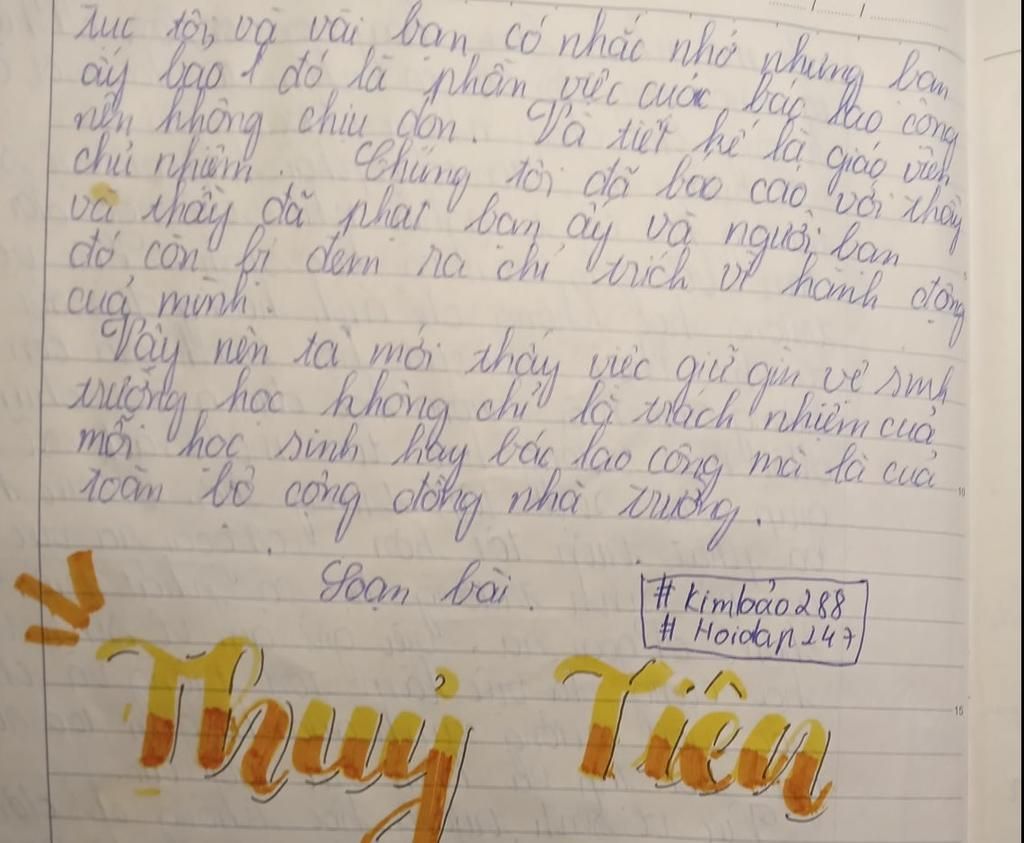 tục tôi và vài bạn có nhắc nhở nhưng bạn
ấy bảo đó là phần việc của bác lao công
nên không chịu dọn. Và tiết kế là giáo viên
chủ nhiệm. Chúng tôi đã báo cáo với thầy
và thầy đã phạt bạn ấy và người bạn
đó còn bị đem ra chỉ trích vì hành động
của mình.
Vậy nên ta mới thấy việc giữ gìn vệ sinh
trường học không chỉ là trách nhiệm của
mỗi học sinh hay bác lao công mà là của
toàn bộ cộng đồng nhà trường.
10
Soạn bài.
# Kimbảo288
# Hoidap247
15
Thuỷ Tiên